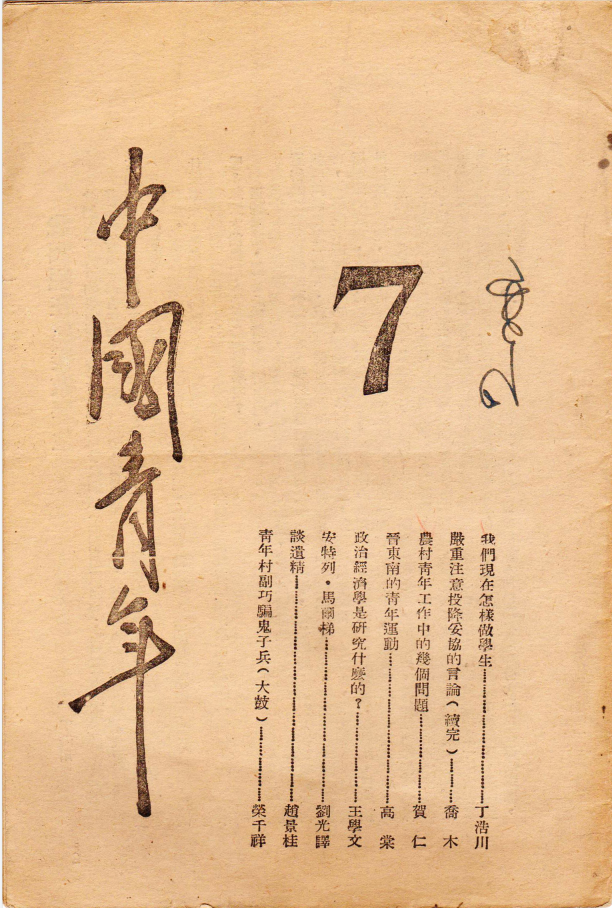 中國青年
7
我們現在怎樣做學生 丁浩川
嚴重注意投降妥協的言論(續完) 喬木
農村青年工作中的幾個問題 賀仁
晉東南的青年運動 高棠
政治經濟學是研究什麼的? 王學文
安特列·馬爾梯 劉光譯
談遺精 趙景桂
青年村副巧騙鬼子兵(大鼓) 榮千祥